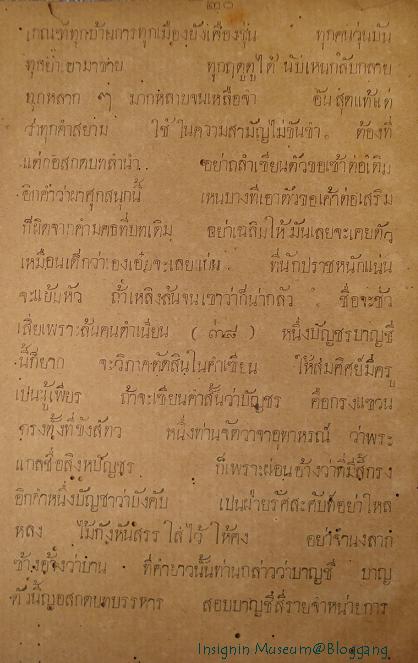 ๓๐
เกณฑ์ทุกบ้านการทุกเมืองยังเคืองขุ่น ทุกคนวุ่นบ่น
ทุกฤดูดูได้ นับเหนกลับกลาย
ทุกหลาก ๆ มากหลายจนเหลือจำ อันสุดแท้แต่
ว่าทุกคำสยาม ใช้ในความสามัญไม่ขันขำ ต้องที่
แต่กอสกดบทลำนำ อย่าถลำเขียนตัวขอเข้าต่อเติม
อีกคำว่าผาศุกสนุกนี้ เหนบางที่เอาตัวขอเค้าต่อเสริม
ก็ผิดจากคำมคธที่บทเดิม อย่าเฉลิมให้มันเลยจะเคยตัว
ที่นักปราชหนักแน่น
จะแย้มหัว ถ้าเหลิงล้นจนเขาว่าก็น่ากลัว ชื่อจะชั่ว
เสียเพราะลิ้นคนตำเนียน ( ๓๘ ) หนึ่งบัญชรบาญชี
นี้ก็ยาก จะวิภาคตัดสินในคำเขียน ให้สมศิศย์มีครู
เปนผู้เพียร ถ้าจะเขียนคำสั้นว่าบัญชร คือกรงแขวน
กรงตั้งที่ขังสัตว หนึ่งท่านจัดวาจาอุทาหรณ์ ว่าพระ
แกลชื่อสิงหบัญชร ก็เพราะผ่อนอ้างว่าที่มีสี่กรง
อีกคำหนึ่งบัญชาว่าบังคับ เปนฝ่ายรัศสะศับท์อย่าใหล
หลง ไม้กังหันสรร ใส่ไว้ ให้คง อย่าจำนงลาก
ข้างอ้างว่าบ้าน ที่คำยาวนั้นท่านกล่าวว่าบาญชี บาญ
ตัวนี้ญอสกดบทบรรหาร สอบบาญชีสี่รายจำหน่ายการ
Insignin Museum@Bloggang